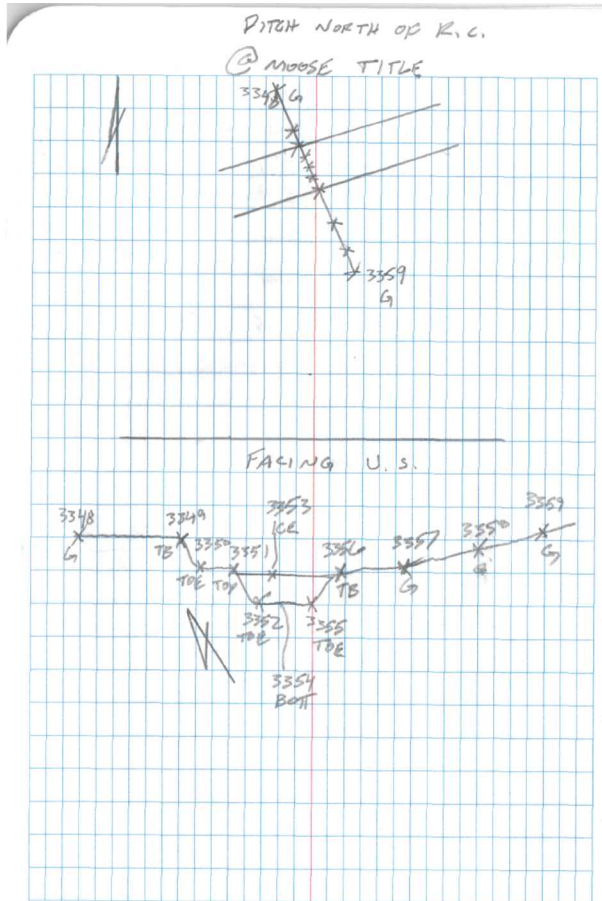 DITCH NORTH OF R.C.
@ MOOSE TITLE
3348 G
3359
G
FACING U.S.
3348
G
3349
TB
3350
TOE
3351
TOP
3353
ICE
3352
TOE
3354
BOTT
3355
TOE
3356
TB
3357
G
3358
G
3359
G